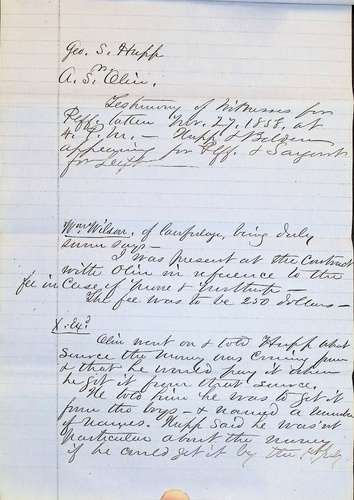 Geo. S. Hupp
vs
A. S. Olin.
Testimony of Witnesses for
Plff. taken Nov. 27, 1858, at
4. P.M. — Hupp &
appearing for Plff. & Sargent
for Deft —
Wm Wilson, of lawful age, being duly
sworn says —
I was present at the contract
with Olin in reference to the
fee in case of
The fee was to be 250 dollars —
X. Ex.d
Olin went on & told Hupp what
source the money was coming from
& that he would pay it when
he got it from that source.
He told him he was to get it
from the boys — & named a number
of names. Hupp said he was'nt
particular about the money
if he could get it by the